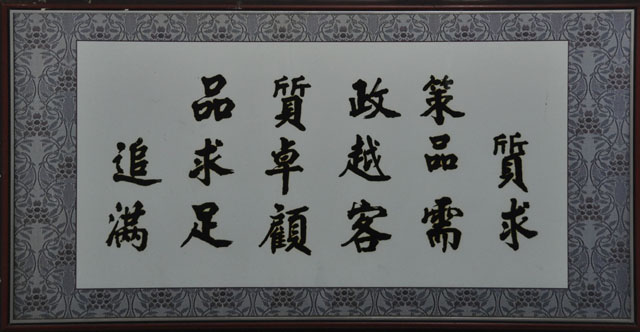 品質政策
追求卓越品質
滿足顧客需求